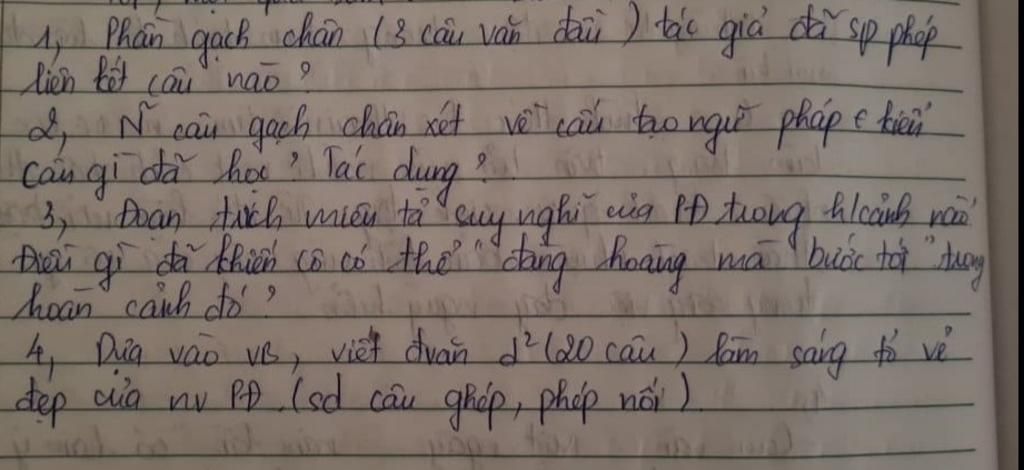 1, Phần gạch chân (3 câu văn đầu) tác giả đã sp phép
liên kết câu nào?
2, N̄ câu gạch chân xét về cấu tạo ngữ pháp ϵ kiểu
câu gì đã học? Tác dụng?
3, Đoạn trích miêu tả suy nghĩ của PĐ trong h/cảnh nào?
Điều gì đã khiến cô có thể "đàng hoàng mà bước tới" trong
hoàn cảnh đó?
4, Dựa vào VB, viết đvăn d² (20 câu) làm sáng tỏ vẻ
đẹp của nv PĐ. (sd câu ghép, phép nối).